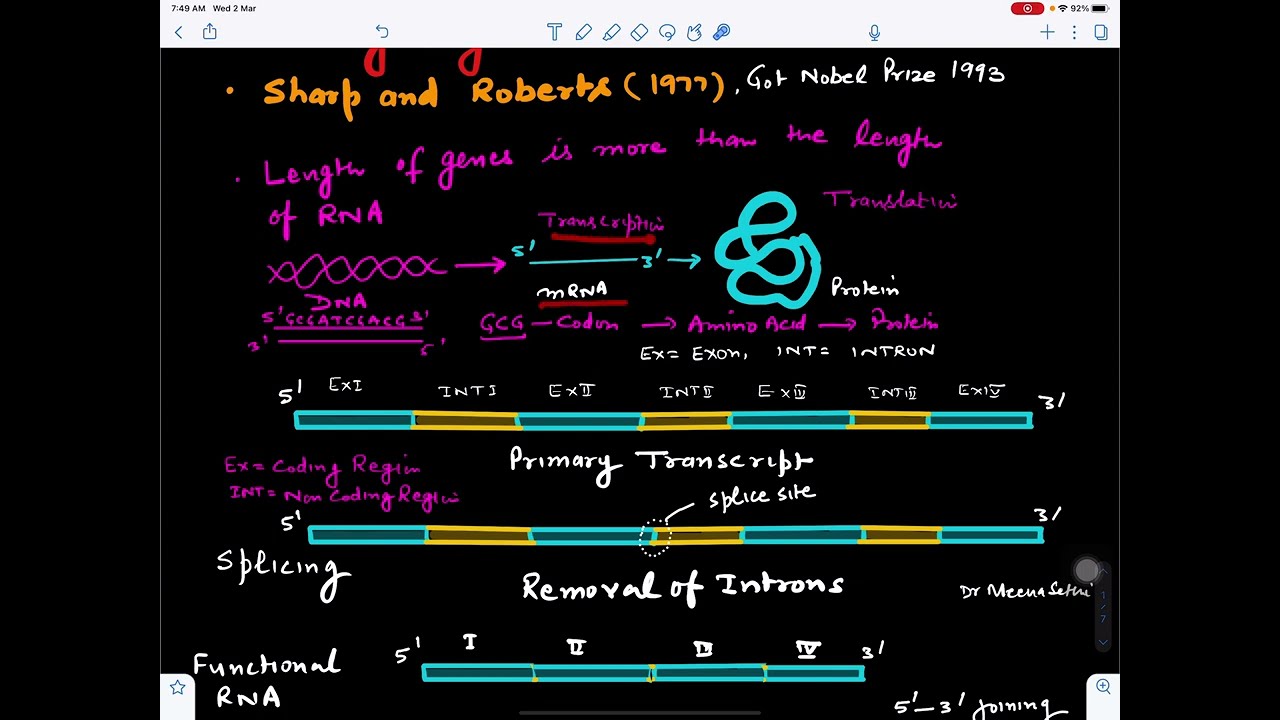 7:49 AM Wed 2 Mar
92%
• Sharp and Roberts (1977), Got Nobel Prize 1993
• Length of genes is more than the length
of RNA
Transcription
Translation
5' 3'
DNA
mRNA
Protein
5' GCGATCGACG 3'
3' 5'
GCG — Codon → Amino Acid → Protein
Ex = Exon, INT = INTRON
5' Ex I INT I Ex II INT II Ex III INT III Ex IV 3'
Primary Transcript
Ex = Coding Region
INT = Non Coding Region
splice site
5' 3'
Splicing
Removal of Introns
Dr Meena Sethi
1/7
5' I II III IV 3'
Functional
RNA
5' — 3' joining